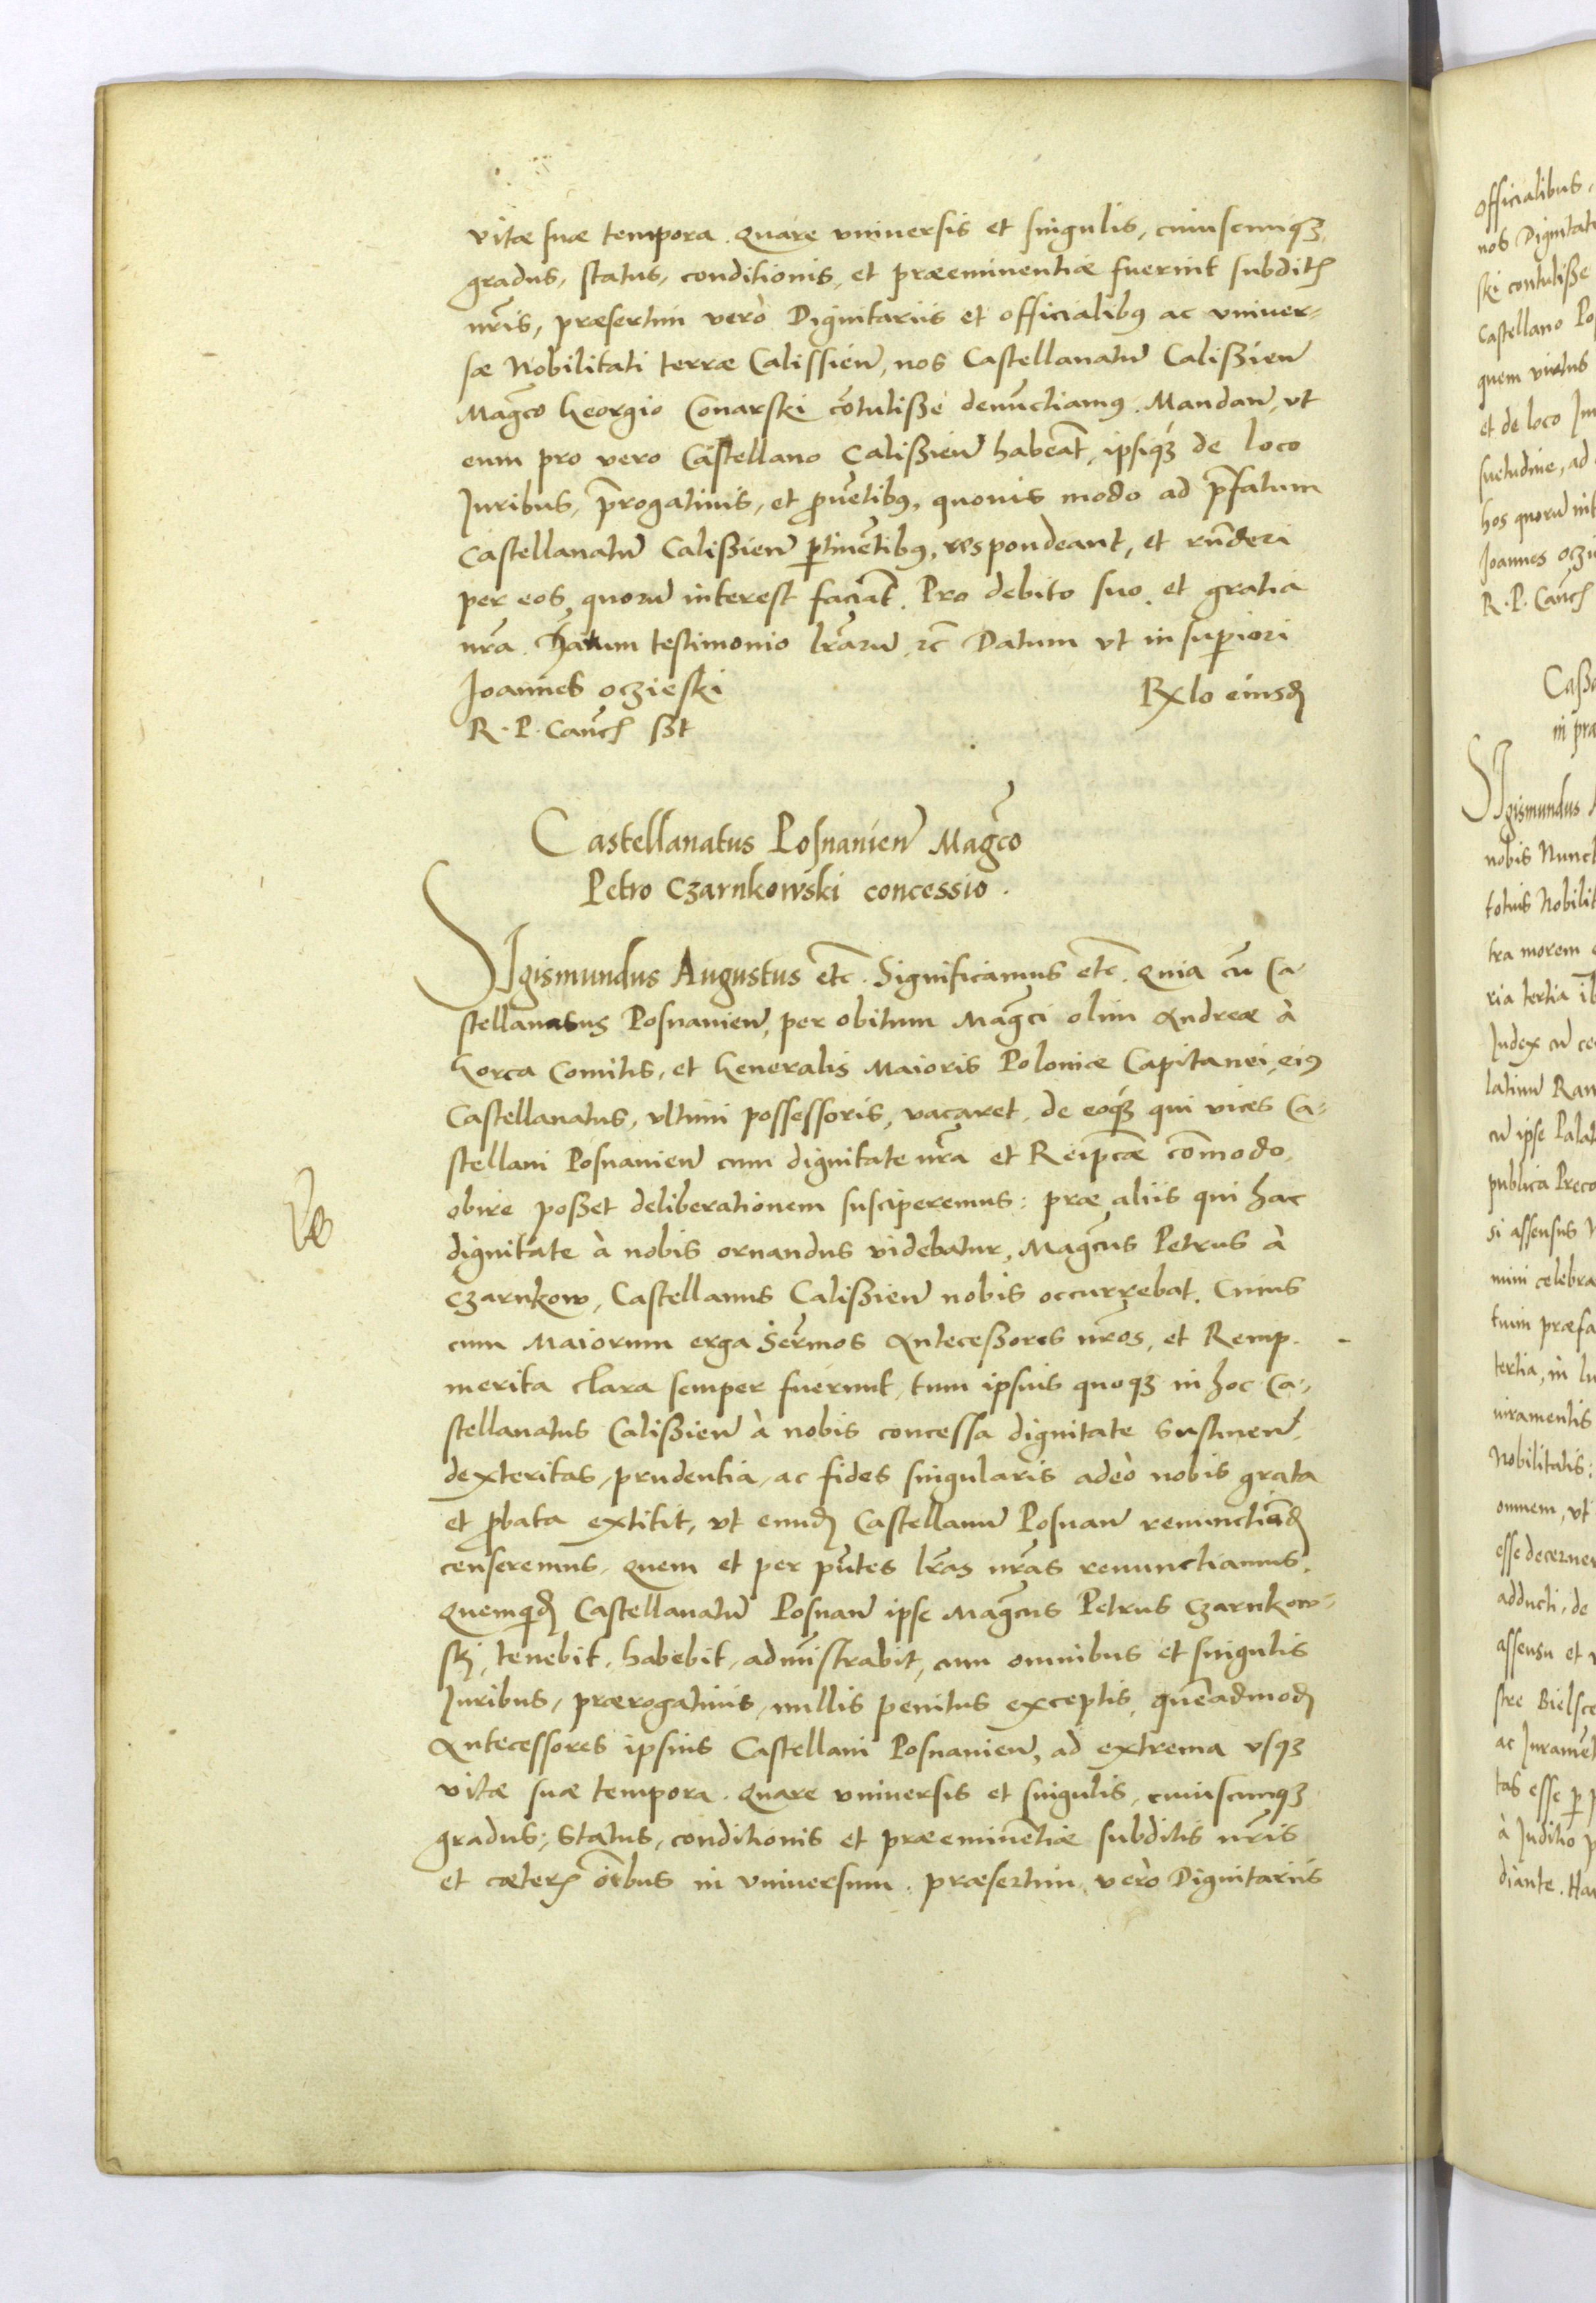 vitæ suæ tempora. Quare vniuersis et singulis, cuiuscunqꝫ
gradus, status, conditionis, et præeminentiæ fuerint subditis
nr̃is, præsertim verò Dignitariis et officialibꝰ ac vniuer-
sæ Nobilitati terræ Calissien̄, nos Castellanatū Calißien̄
Mag̃co Georgio Conarski cōtulisse denūctiamꝰ. Mandan̄, vt
eum pro vero Castellano Calißien̄ habeāt, ipsiqꝫ de loco
Iuribus, p̄rogatiuis, et ꝓuētibꝰ, quouis modo ad p̄fatum
Castellanatū Calißien̄ ꝑtinētibꝰ, respondeant, et rn̄deri
per eos, quorū interest faciāt. Pro debito suo, et gratia
nr̃a. Harum testimonio lr̃arū, ꝛc̄ Datum vt in superiori
Joannes oczieski Rx̄lo eiusđ
R. P. Canc̃ ßt
Castellanatus Posnanien̄ Mag̃co
Petro Czarnkowski concessio.
SIgismundus Augustus etc̄. Significamus etc̄. Quia cū Ca-
stellanatus Posnanien̄, per obitum Mag̃ci olim Andreæ à
Gorca Comitis, et Generalis Maioris Poloniæ Capitanei, eiꝰ
Castellanatus, vltimi possessoris, vacaret, de eoqꝫ qui vices Ca-
stellani Posnanien̄ cum dignitate nr̃a et Reipcæ cōmodo,
obire posset deliberationem susciperemus: præ aliis qui hac
dignitate à nobis ornandus videbatur, Mag̃cus Petrus à
Czarnkow, Castellanus Calißien̄ nobis occurrebat. Cuius
cum Maiorum erga Sermos Anteceßores nr̃os, et Remp.
merita clara semper fuerunt, tum ipsius quoqꝫ in hoc Ca-
stellanatus Calißien̄ à nobis concessa dignitate sustinen̄,
dexteritas, prudentia, ac fides singularis adeò nobis grata
et ꝓbata extitit, vt eundđ Castellanū Posnan̄ renunctiānđ
censeremus. Quem et per pn̄tes lr̃as nr̃as renunctiamus.
Quemquidđ Castellanatū Posnan̄ ipse Mag̃cus Petrus Czarnkow-
ski, tenebit, habebit, administrabit, cum omnibus et singulis
Iuribus, prærogatiuis, nullis penitus exceptis, quēadmodđ
Antecessores ipsius Castellani Posnanien̄, ad extrema vsqꝫ
vitæ suæ tempora. Quare vniuersis et singulis, cuiuscunqꝫ
gradus, status, conditionis et præeminētiæ subditis nr̃is
et cæteris oībus in vniuersum, præsertim verò Dignitariis
officialibus,
nos Dignitate
ski contulisse
Castellano Po
quem virtus
et de loco
suetudine, ad
hos quorū int
Joannes oczi
R. P. Canc̃
Caßa
in præ
SIgismundus
nobis Nunct
totius Nobilit
tra morem
ria tertia ib
Iudex cū ce
latinū Ran
cū ipse Palat
publica Preco
si assensus
mini celebra
tuim præfa
tertia, in lu
uiramentis
Nobilitatis:
omnem, vt
esse decerner
adducti, de
assensu et
stre Bielsce
ac Iuramēt
tas esse ꝑ
à Iuditio p
diante. Har